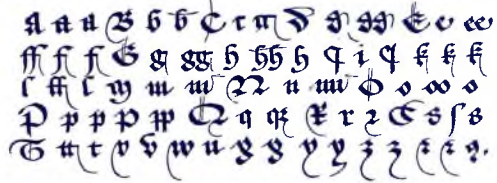 A a a B b b C c D d dd E e ee
ff f f G g gg h hh h i k k k
l ll l m m N n nn O o oo o
P p p p pp Q q R r ꝛ S s ſ s
T tt t v v w u x x y y z z